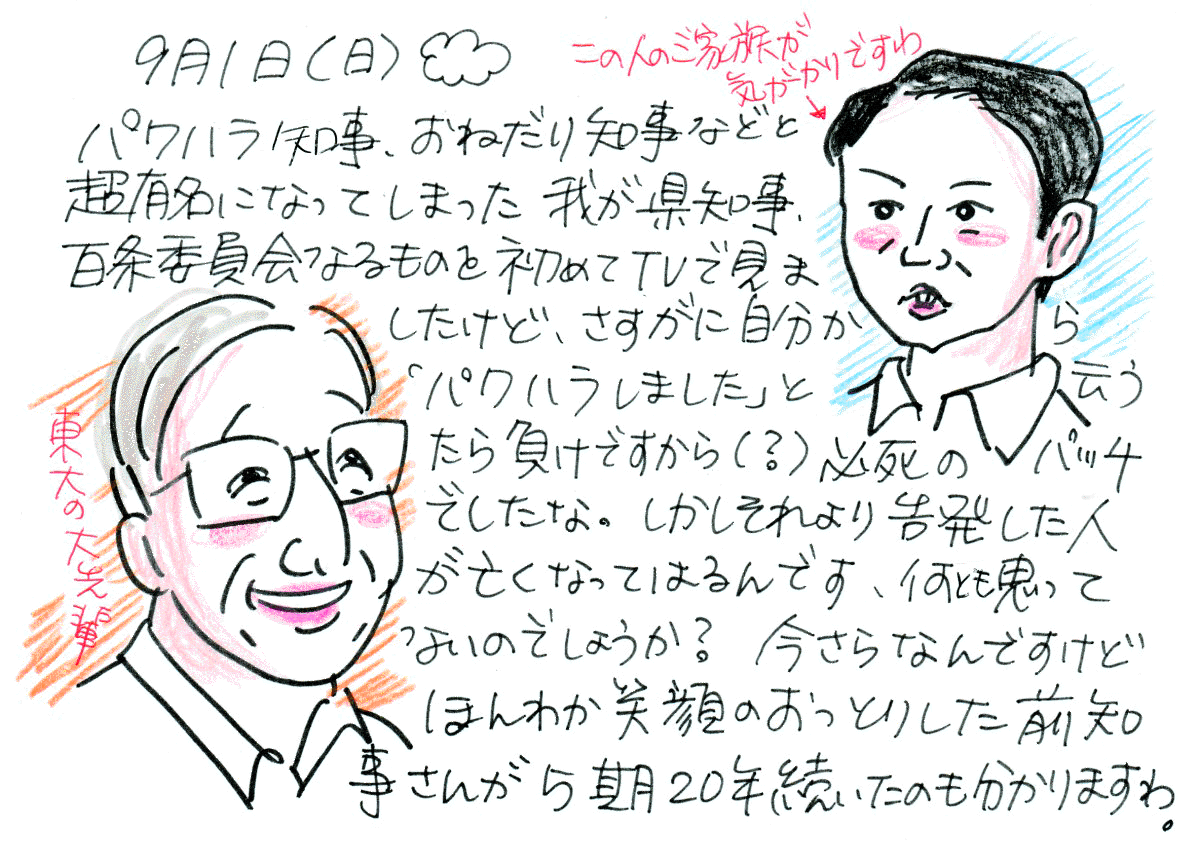 9月1日(日)
この人のご家族が
気がかりですわ
パワハラ知事、おねだり知事などと
超有名になってしまった我が県知事、
百条委員会なるものを初めてTVで見ま
したけど、さすがに自分から
「パワハラしました」と云う
たら負けですから(?)必死のパッチ
でしたな。しかしそれより告発した人
が亡くなってはるんです、何とも思って
ないのでしょうか? 今さらなんですけど
ほんわか笑顔のおっとりした前知
事さんが5期20年続いたのも分かりますわ。
東大の大先輩